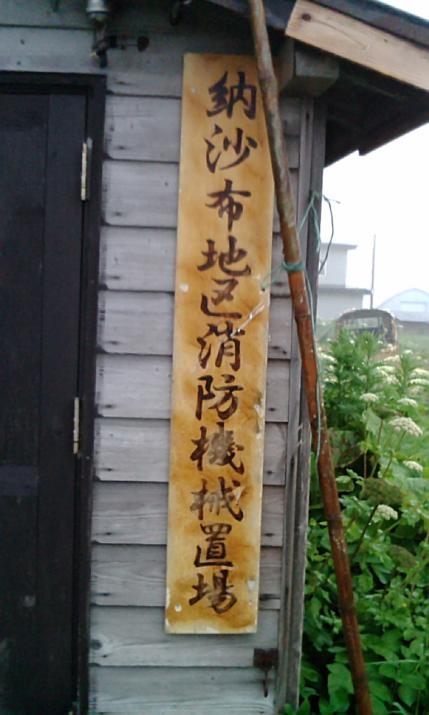 納沙布地区消防機械置場